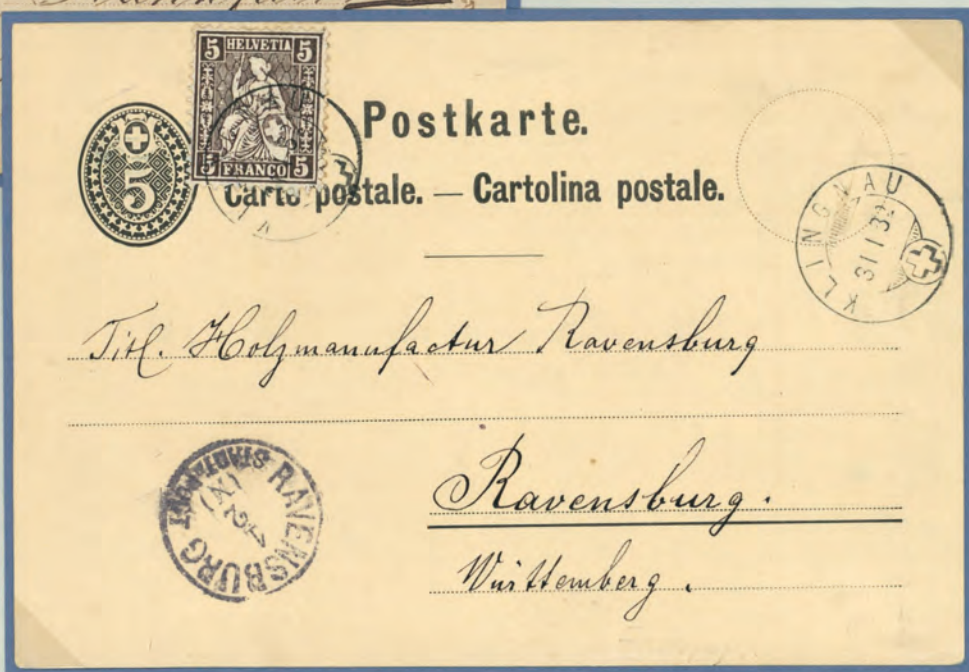 5 HELVETIA 5
5 FRANCO 5
5
Postkarte.
Carte postale. — Cartolina postale.
KLINGNAU
31 I 82
Titl. Holzmanufactur Ravensburg
Ravensburg.
Württemberg.
RAVENSBURG STADTPOST